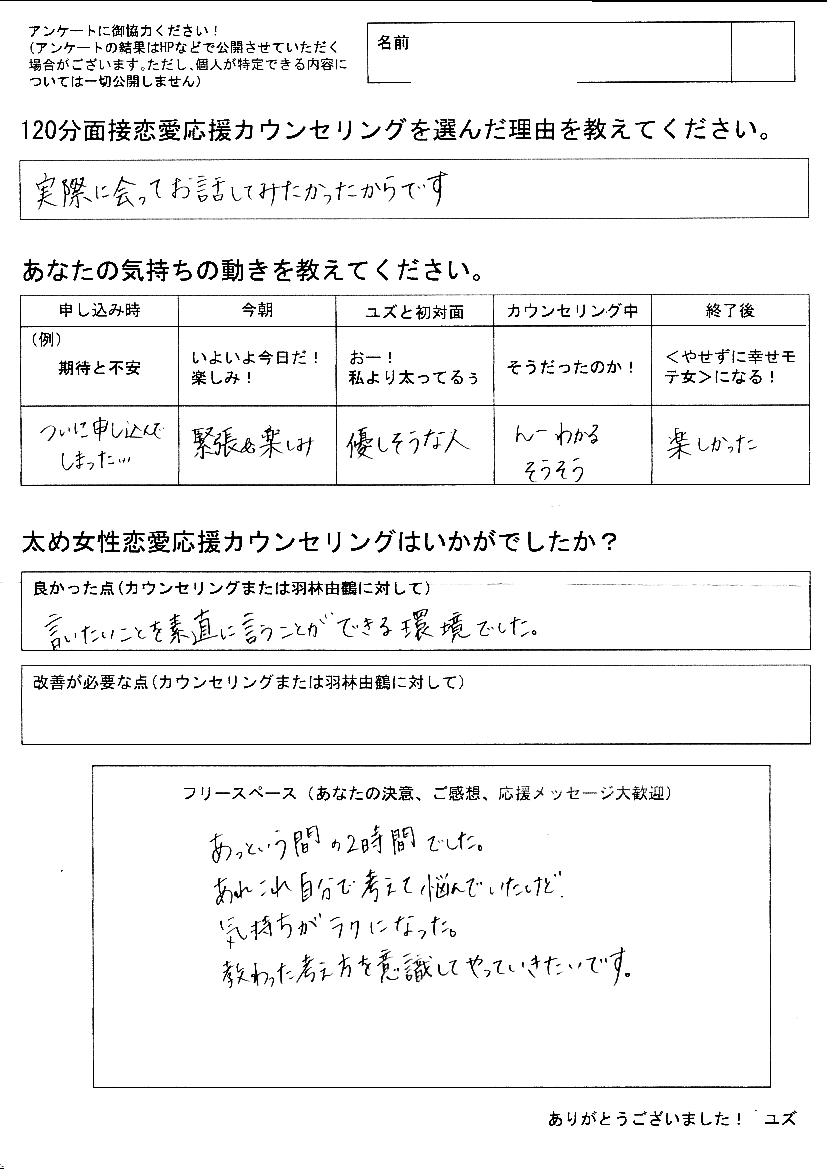 アンケートに御協力ください！
（アンケートの結果はHPなどで公開させていただく
場合がございます。ただし、個人が特定できる内容に
ついては一切公開しません）
名前
120分面接恋愛応援カウンセリングを選んだ理由を教えてください。
実際に会ってお話してみたかったからです
あなたの気持ちの動きを教えてください。
申し込み時 今朝 ユズと初対面 カウンセリング中 終了後
（例）
期待と不安
いよいよ今日だ！
楽しみ！
おー！
私より太ってるぅ
そうだったのか！
＜やせずに幸せモ
テ女＞になる！
ついに申し込んで
しまった…
緊張&楽しみ
優しそうな人
んーわかる
そうそう
楽しかった
太め女性恋愛応援カウンセリングはいかがでしたか？
良かった点（カウンセリングまたは羽林由鶴に対して）
言いたいことを素直に言うことができる環境でした。
改善が必要な点（カウンセリングまたは羽林由鶴に対して）
フリースペース（あなたの決意、ご感想、応援メッセージ大歓迎）
あっという間の2時間でした。
あれこれ自分で考えて悩んでいたけど、
気持ちがラクになった。
教わった考え方を意識してやっていきたいです。
ありがとうございました！ ユズ